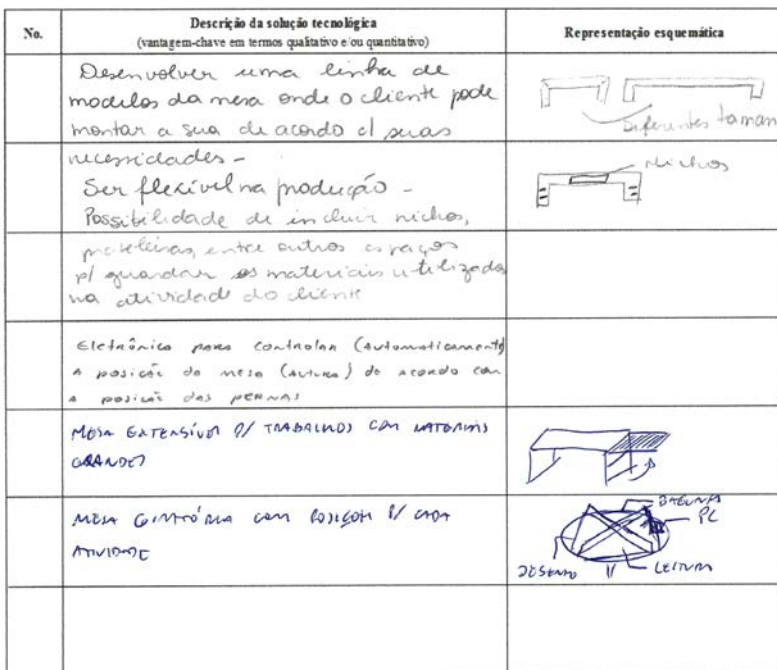 No.
Descrição da solução tecnológica
(vantagem-chave em termos qualitativo e/ou quantitativo)
Representação esquemática
Desenvolver uma linha de
modelos da mesa onde o cliente pode
montar a sua de acordo c/ suas
Diferentes taman
necessidades -
Ser flexível na produção -
Possibilidade de incluir nichos,
Nichos
prateleiras, entre outros espaços
p/ guardar os materiais utilizados
na atividade do cliente
Eletrônica para controlar (automaticamente)
a posição da mesa (altura) de acordo com
a posição das pernas
MESA EXTENSÍVEL P/ TRABALHOS COM MATERIAIS
GRANDES
MESA GIRATÓRIA COM POSIÇÕES P/ CADA
ATIVIDADE
PC
DESENHO
LEITURA